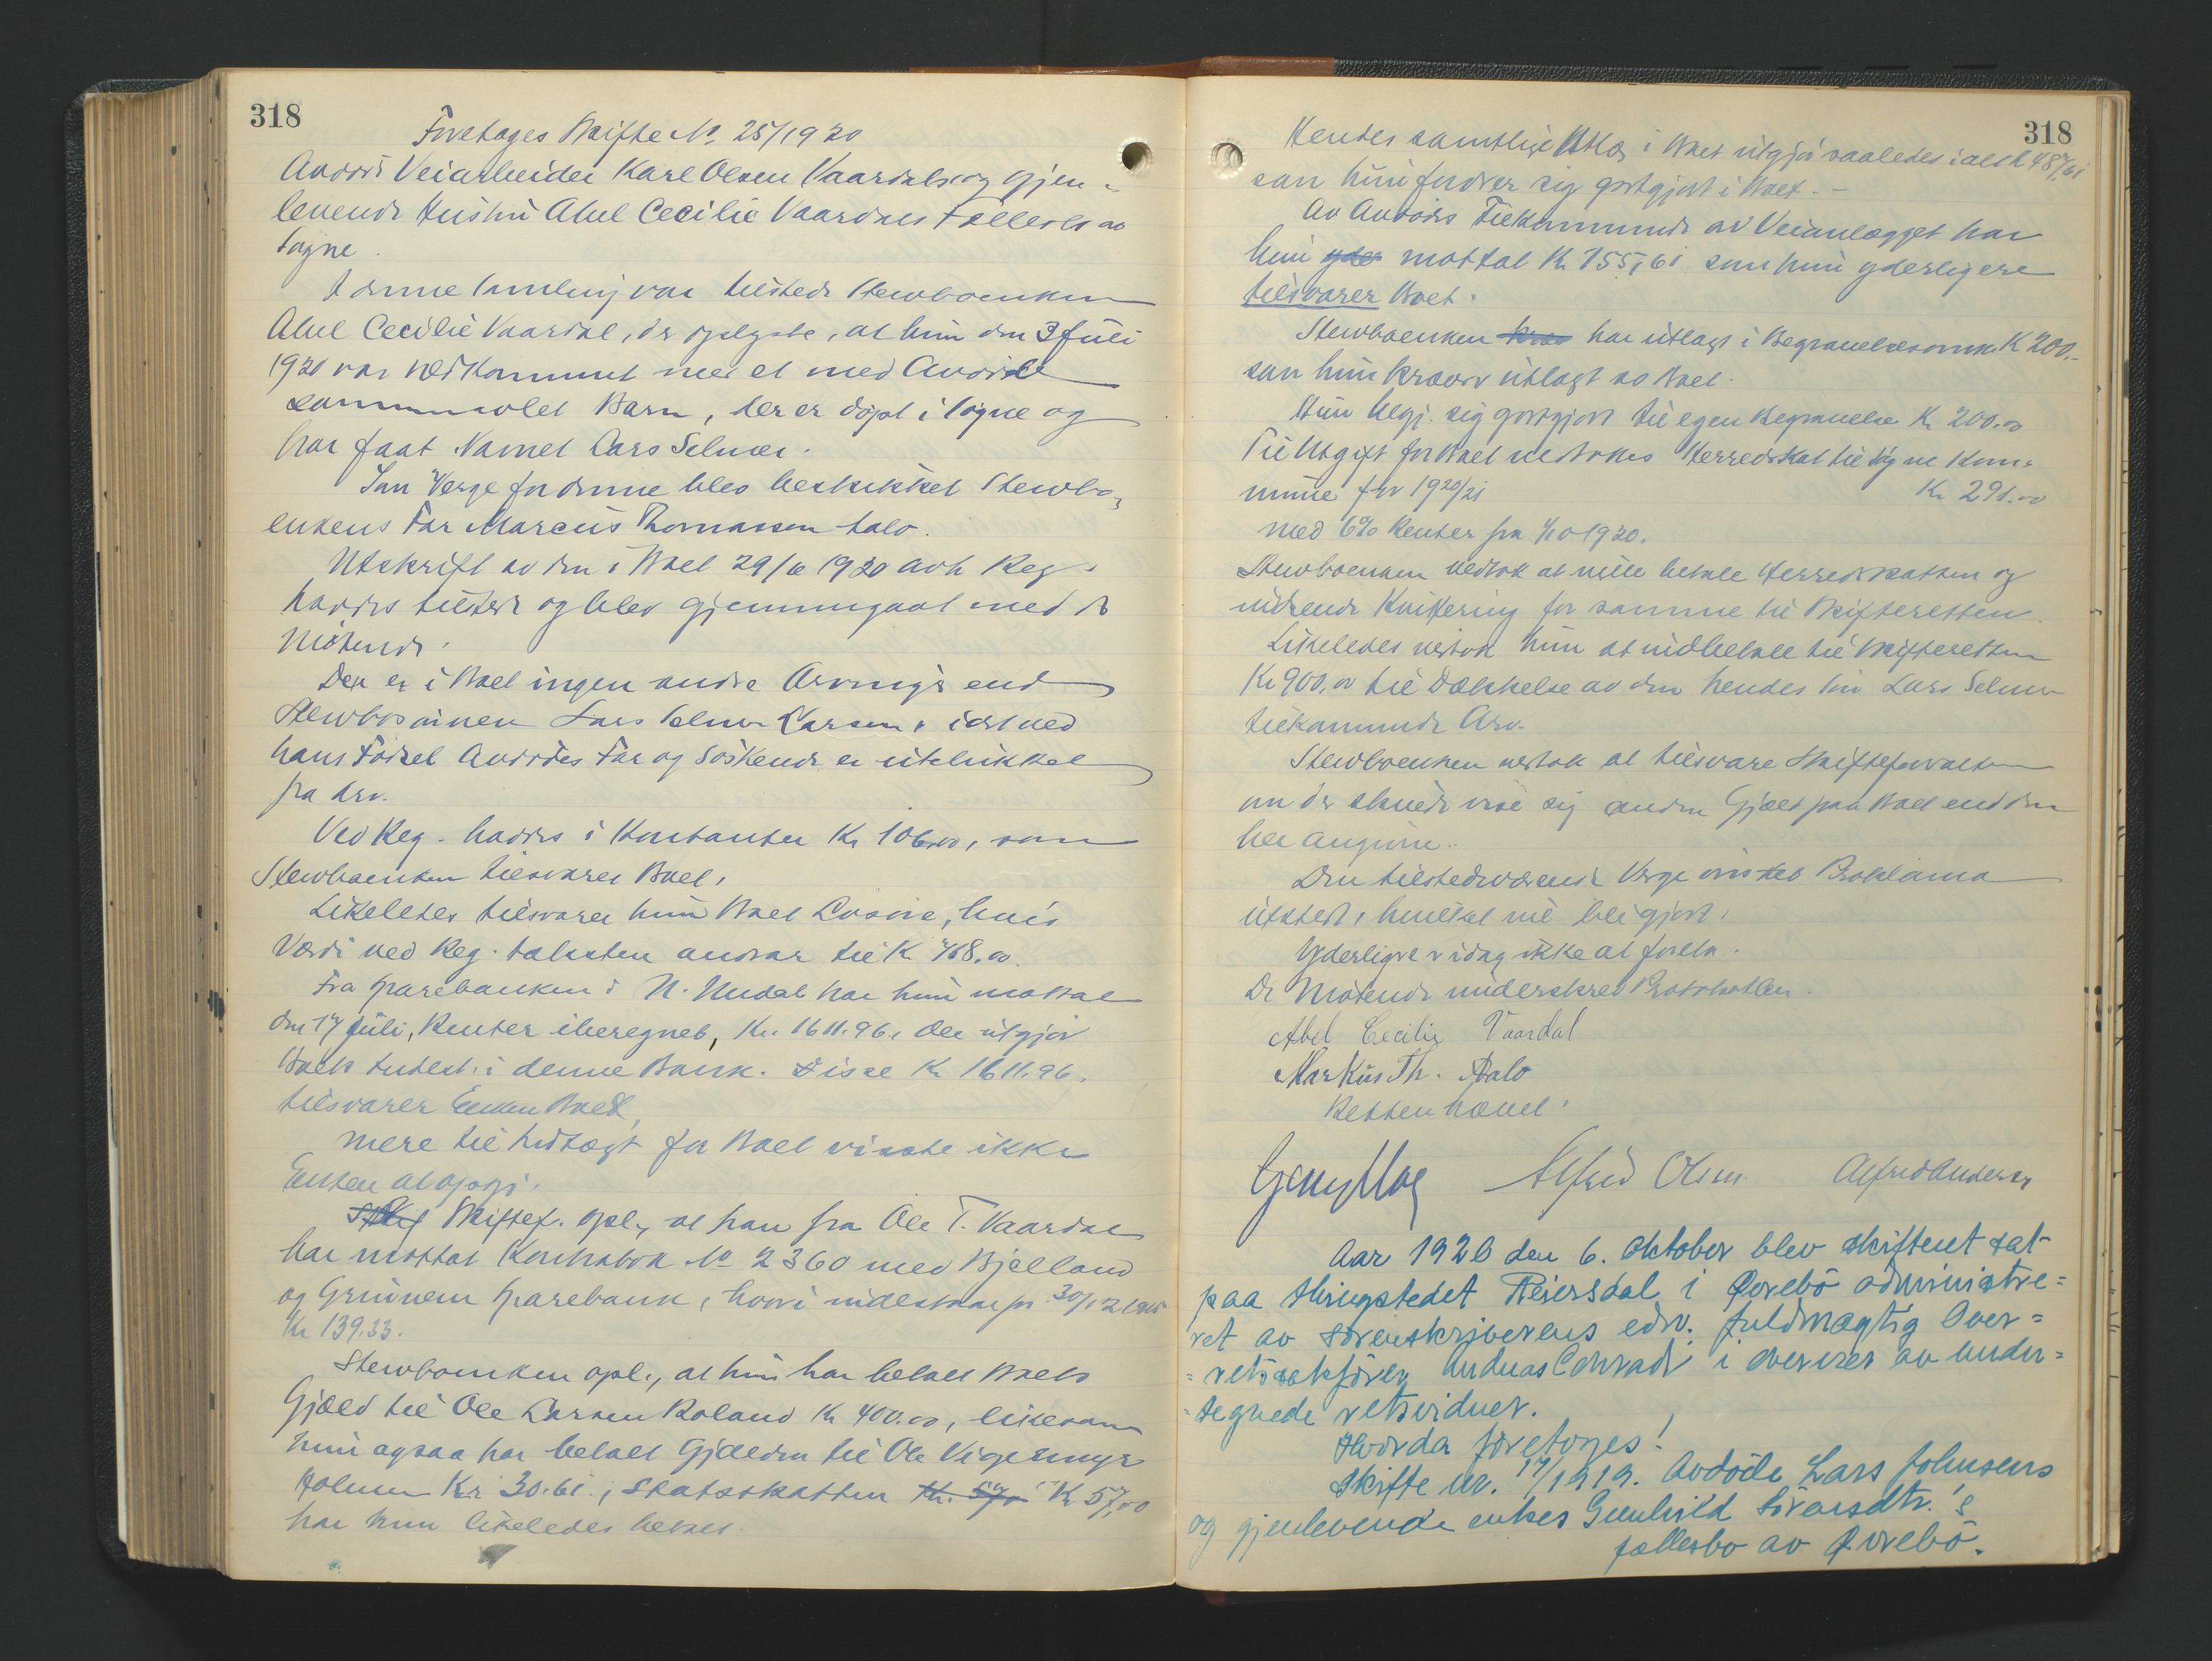 318
Foretages Skifte No. 25/1920
Avdøde Veiarbeider Karl Olsen Vaardals og gjen-
levende Hustru Abel Cecilie Vaardals Fællesbo av
Søgne.
I denne Samling var tilstede Stervboenken
Abel Cecilie Vaardal, der oplyste, at hun den 3 Juli
1920 var nedkommet med et med Avdøde
sammenavlet Barn, der er døpt i Søgne og
har faat Navnet Lars Selmer.
Som Verge for denne blev beskikket Stervbo-
enkens Far Marcus Thomassen Aalo.
Utskrift av den i Boet 29/6 1920 avh. Reg.
havdes tilstede og blev gjennemgaat med de
Møtende.
Der er i Boet ingen andre Arvinger end
Stervbosønnen Lars Selmer Karsen, idet ved
hans Fødsel Avdødes Far og Søskende er utelukket
fra Arv.
Ved Reg. havdes i Kontanter Kr 106,00, som
Stervboenken tilsvarer Boet.
Likeledes tilsvarer hun Boet Løsøre, hvis
Værdi ved Reg. taksten andrar til K 468.00.
Fra Sparebanken i N. Undal har hun mottat
den 17 Juli, Renter iberegnet, Kr. 1611.96, der utgjør
Boets Indest. i denne Bank. Disse Kr 1611.96.
tilsvarer Enken Boet,
mere til Indtægt for Boet visste ikke
Enken at opgi.
Skif Skiftef. opl., at han fra Ole T. Vaardal
har mottat Kontrabok No 2360 med Bjelland
og Grindem Sparebank, hvori indestaar pr. 30/12 1915
Kr 139.33.
Stervboenken opl., at hun har betalt Boets
Gjæld til Ole Larsen Roland Kr 400.00, likesom
hun ogsaa har betalt Gjælden til Ole Vigemyr
Holum Kr. 30.61, Statsskatten Kr. 57,0 Kr 57,00
har hun likeledes betalt.
318
Hendes samtlige Utlæg i Boet utgjør saaledes ialt K 487,61
som hun fordrer sig godtgjort i Boet. -
Av Avdødes Tilkommende av Veianlægget har
hun yder mottat Kr 155,61 som hun yderligere
tilsvarer Boet.
Stervboenken krav har utlagt i Begravelsesomk. K 200.-
som hun kræver utlagt av Boet.
Hun begj. sig godtgjort til egen Begravelse Kr 200.00
Til Utgift for Boet vedtokes Herredskat til Søgne Kom-
mune for 1920/21 Kr 291.00
med 6% Renter fra 1/10 1920.
Stervboenken vedtok at ville betale Herredsskatten og
indsende Kvittering for samme til Skifteretten.
Likeledes vedtok hun at indbetale til Skifteretten
Kr 900,00 til Dækkelse av den hendes Søn Lars Selmer
tilkommende Arv.
Stervboenken vedtok at tilsvare Skifteforvalteren
om der skulde vise sig anden Gjæld paa Boet end den
her angivne.
Den tilstedeværende Verge ønsket Proklama
utstedt, hvilket vil bli gjort.
Yderligere v idag ikke at foreta.
De Møtende underskrev Protokollen.
Abel Cecilie Vaardal
Markus Th. Aalo
Retten hævet.
Alfred Olsen Alfred Andersen
Aar 1920 den 6. oktober blev skifteret sat
paa thingstedet Reiersdal i Øvrebø administre=
ret av sorenskriverens edsv. fuldmægtig Over=
=retssakfører Andreas Conradi i overvær av under=
=tegnede retsvidner.
Hvorda foretoges!
Skifte nr. 17/1919. Avdøde Lars Johnsens
og gjenlevende enkes Gunhild Sivarsdtr.'s
fællesbo av Øvrebø.